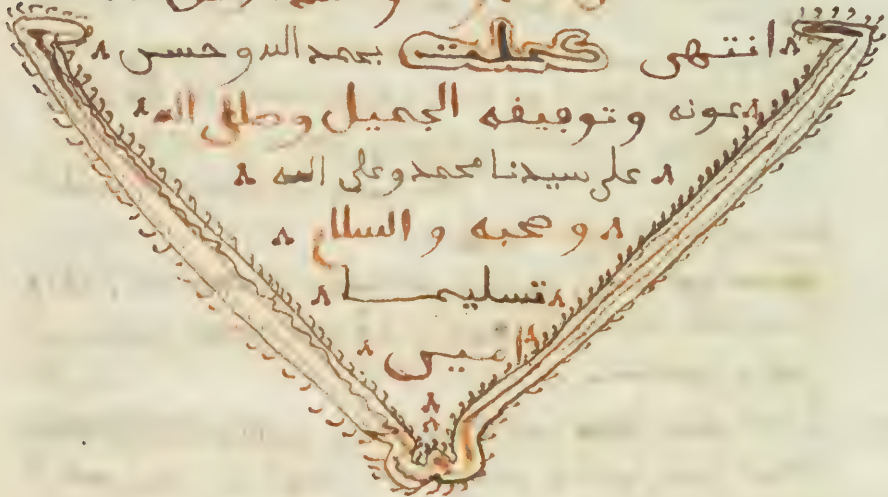 انتهى كملت بحمد الله وحسن
عونه وتوفيفه الجميل وصلى الله
على سيدنا محمد وعلى اله
و صحبه و السلام
تسليما
امين